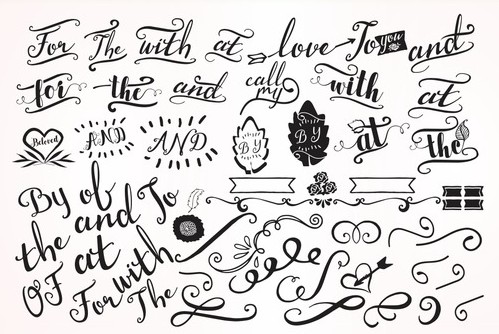 For The with at love To you and
for the and call my with at
Beloved AND AND BY BY at the
By of To
the and
OF at with
For The